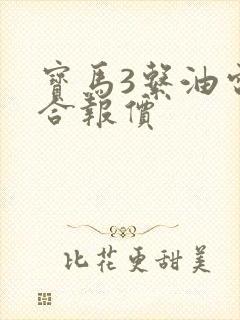 寶馬3繫油電
合報價
比花更甜美